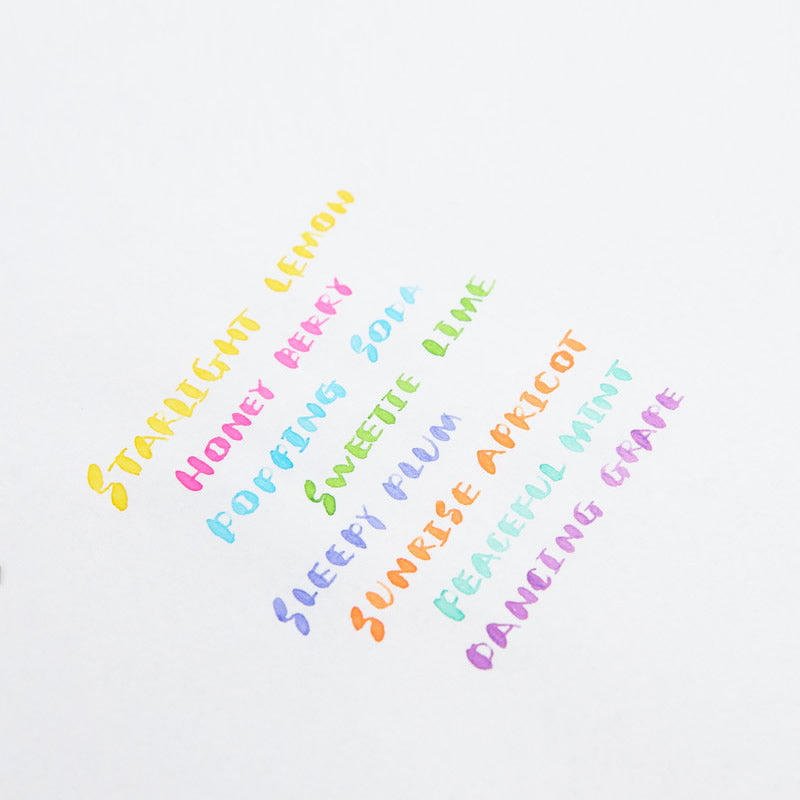 STARLIGHT LEMON
HONEY BERRY
POPPING SODA
SWEETIE LIME
SLEEPY PLUM
SUNRISE APRICOT
PEACEFUL MINT
DANCING GRAPE